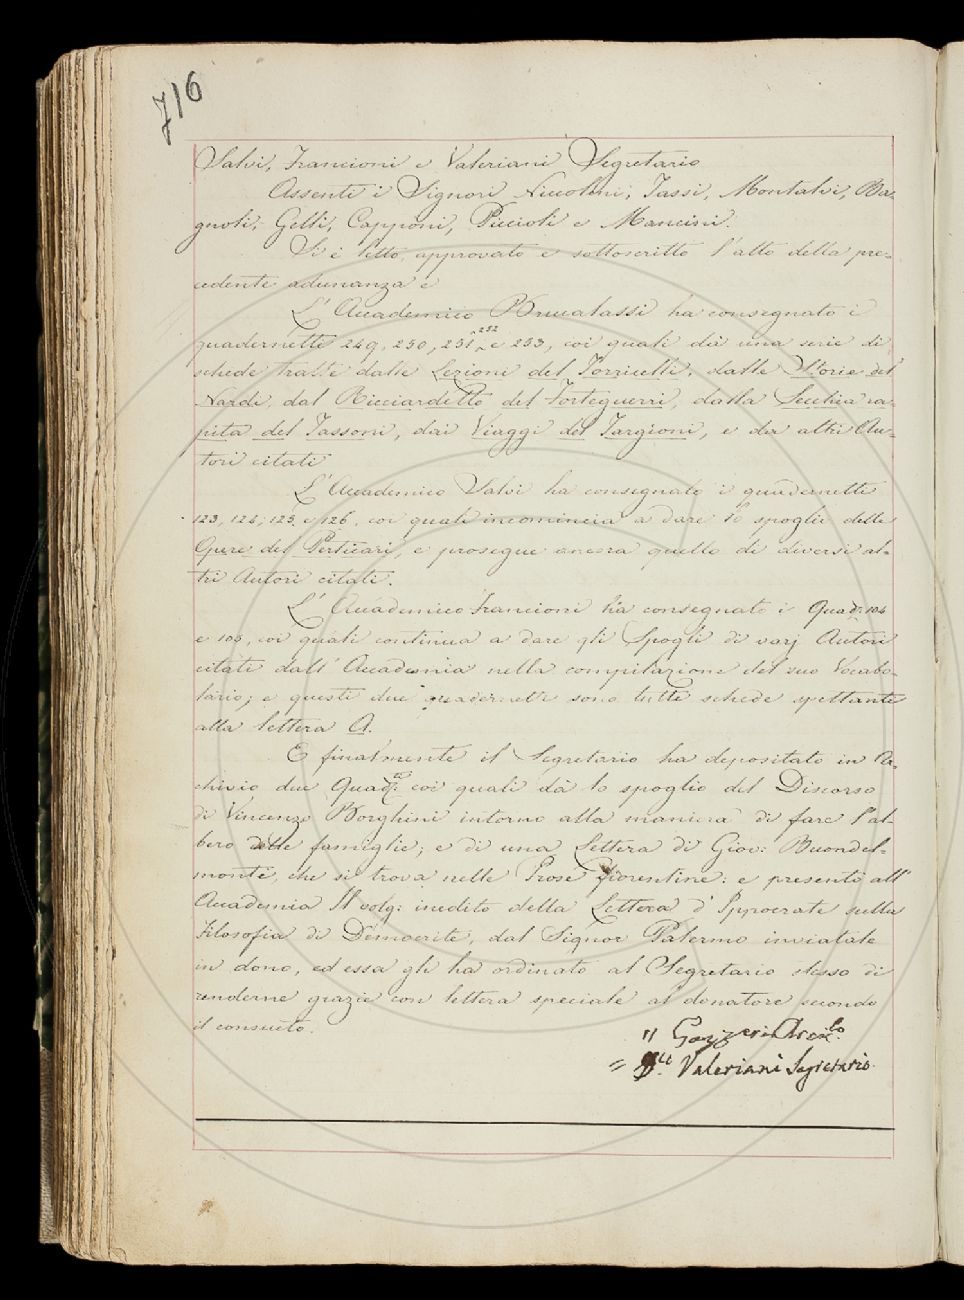 716
Salvi, Francioni e Valeriani Segretario
Assenti i Signori Niccolini, Tassi, Montalvi, Ba-
gnoli, Gelli, Capponi, Piccioli e Mancini.
Si è letto, approvato e sottoscritto l'atto della pre-
cedente adunanza e
L'Accademico Brucalassi ha consegnato i
quadernetti 249, 250, 251, 252 e 253, coi quali dà una serie di
schede tratte dalle Lezioni del Torricelli, dalle Storie del
Nardi, dal Ricciardetto del Forteguerri, dalla Secchia ra-
pita del Tassoni, dai Viaggi del Targioni, e da altri Au-
tori citati
L'Accademico Salvi ha consegnato i quadernetti
123, 124, 125, e 126, coi quali incomincia a dare lo spoglio delle
Opere del Perticari, e prosegue ancora quello di diversi al-
tri Autori citati.
L'Accademico Francioni ha consegnato i Quad: 104
e 105, coi quali continua a dare gli Spogli di varj Autori
citati dall'Accademia nella compilazione del suo Vocabo-
lario; e questi due quadernetti sono tutti schede spettanti
alla lettera A.
E finalmente il Segretario ha depositato in Ar-
chivio due Quad: coi quali dà lo spoglio del Discorso
di Vincenzo Borghini intorno alla maniera di fare l'al-
bero delle famiglie; e di una Lettera di Giov: Buondel-
monti, che si trova nelle Prose fiorentine: e presentò all'
Accademia Il volg: inedito della Lettera d'Ippocrate sulla
Filosofia di Democrito, dal Signor Palermo inviatale
in dono, ed essa gli ha ordinato al Segretario stesso di
renderne grazie con lettera speciale al donatore secondo
il consueto.
" Gazzeri Arcic.lo
= Valeriani Segretario